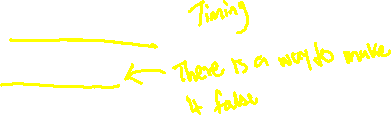 Timing
There is a way to make
it false